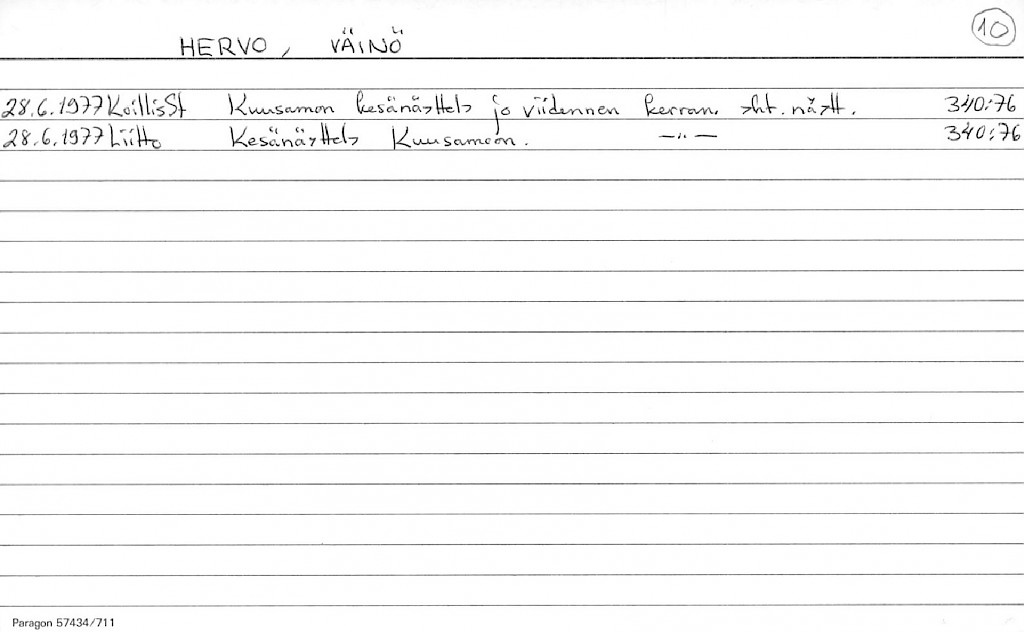 HERVO, VÄINÖ 10
28.6.1977 KoillisSt Kuusamon kesänäyttely jo viidennen kerran. yht. näytt. 340:76
28.6.1977 Liitto Kesänäyttely Kuusamoon. —"— 340:76
Paragon 57434/711